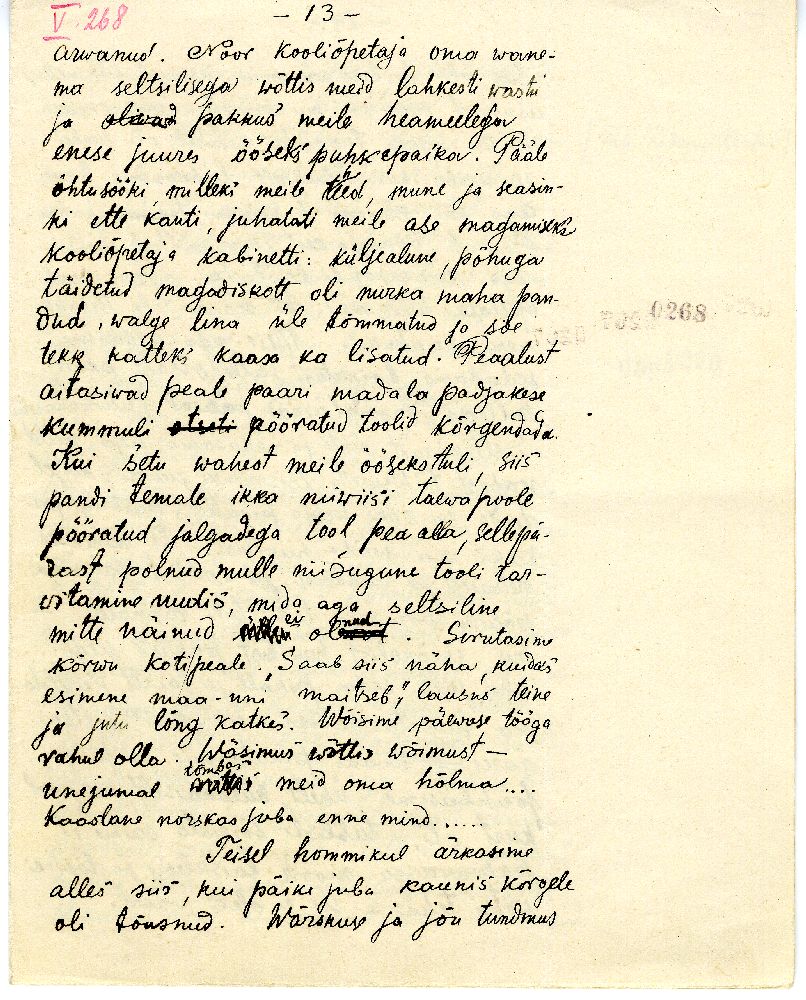 V. 268
– 13 –
arwanud. Noor kooliõpetaja oma wane-
ma seltsilisega wõttis meid lahkesti wastu
ja oliwad pakkus meile heameelega
enese juures ööseks puhkepaika. Pääle
õhtusööki, milleks meile teed, mune ja seasin-
ki ette kanti, juhatati meile ase magamiseks
kooliõpetaja kabinetti: küljealune, põhuga
täidetud magadiskott oli nurka maha pan-
dud, walge lina üle tõmmatud ja soe
tekk katteks kaasa ka lisatud. Peaalust
aitasiwad peale paari madala padjakese
kummuli otseti pööratud toolid kõrgendada.
Kui setu wahest meile öösekstuli, siis
pandi temale ikka niiwiisi taewa poole
pööratud jalgadega tool pea alla, sellepä-
rast polnud mulle niisugune tooli tar-
witamine uudis, mida aga seltsiline
mitte näinud ei olnud. Sirutasime
kõrwu kotipeale. „Saab siis näha, kuidas
esimene maa-uni maitseb", lausus teine
ja jutu lõng katkes. Wõisime päewase tööga
rahul olla. Wäsimus wõttis wõimust —
unejumal tõmbas meid oma hõlma....
Kaaslane norskas juba enne mind.....
Teisel hommikul ärkasime
alles siis, kui päike juba kaunis kõrgele
oli tõusnud. Wärskuse ja jõu tundmus
0268